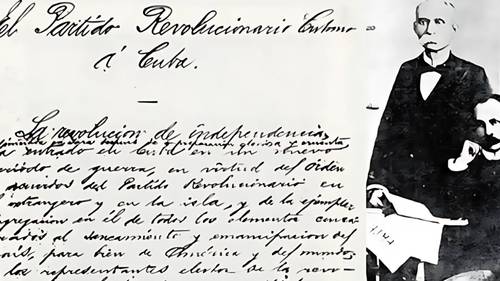 El Partido Revolucionario Cubano
á Cuba.
La revolución de independencia,
en Yara despues de preparacion gloriosa y cruenta
a entrado en Cuba en un nuevo
eríodo de guerra, en virtud del órden
acuerdos del Partido Revolucionario en
extranjero y en la isla, y de la ejemplar
ngregacion en él de todos los elementos consa-
rados al saneamiento y emancipacion del
ais, para bien de América y del mundo;
los representantes electos de la revo-